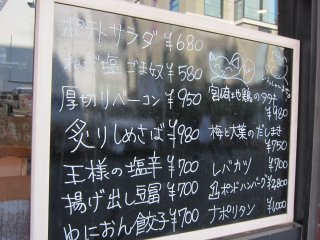 ポテトサラダ ¥680
ねぎ塩ごま奴 ¥580
厚切りベーコン ¥950
炙りしめさば ¥980
王様の塩辛 ¥700
揚げ出し豆冨 ¥700
ゆにおん餃子 ¥700
宮崎地鶏のタタキ
¥980
梅と大葉のだしまき
¥750
レバカツ ¥700
ポンドハンバーグ ¥2,800
ナポリタン ¥1,000